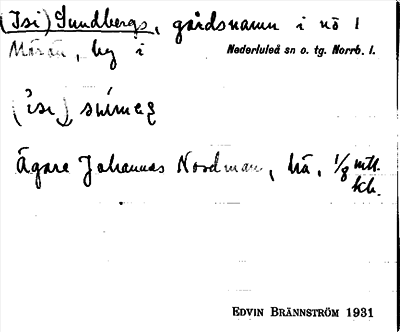 (Isi) Sundbergs, gårdsnamn i nö 1
Mörån, by i Nederluleå sn o. tg. Norrb. l.
Ägare Johannes Nordman, bå, 1/8 mtl.
kh.
EDVIN BRÄNNSTRÖM 1931